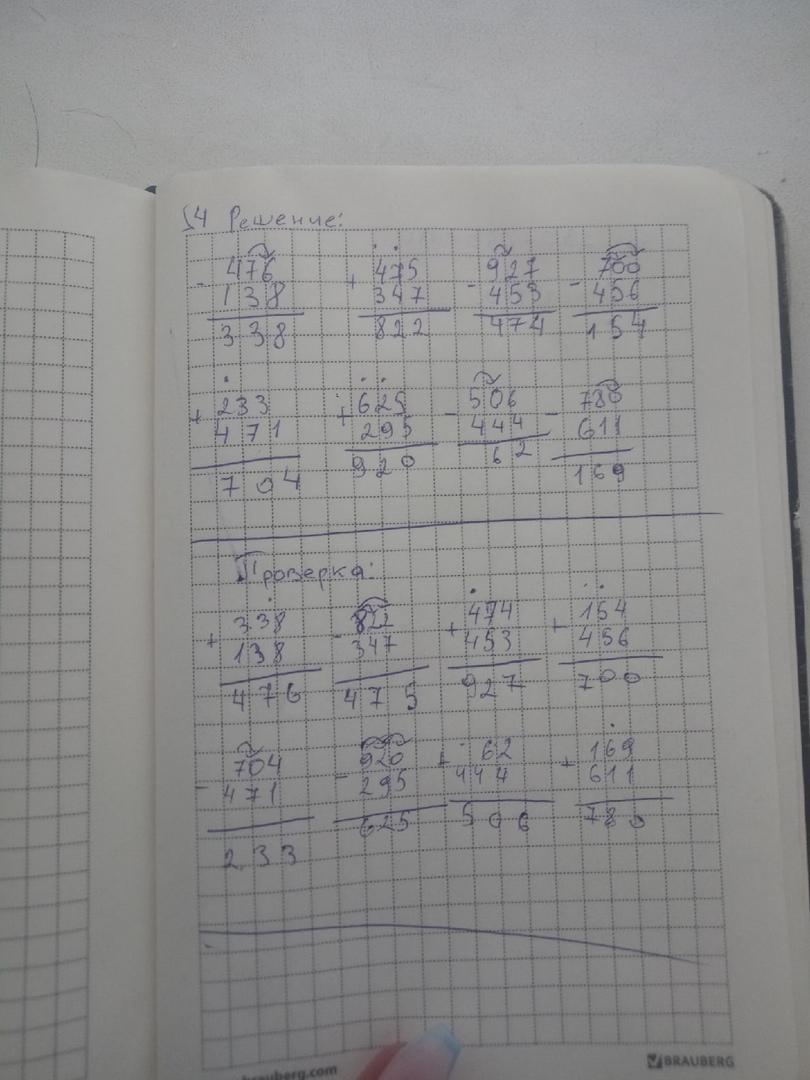 54 Решение:
- 476 + 475 - 927 - 700
138 347 453 456
338 822 474 154
+ 233 + 625 - 506 - 780
471 295 444 611
704 920 62 169
Проверка:
+ 338 - 822 + 474 + 154
138 347 453 456
476 475 927 700
- 704 - 920 + 62 + 169
471 295 444 611
233 625 506 780
brauberg.com BRAUBERG